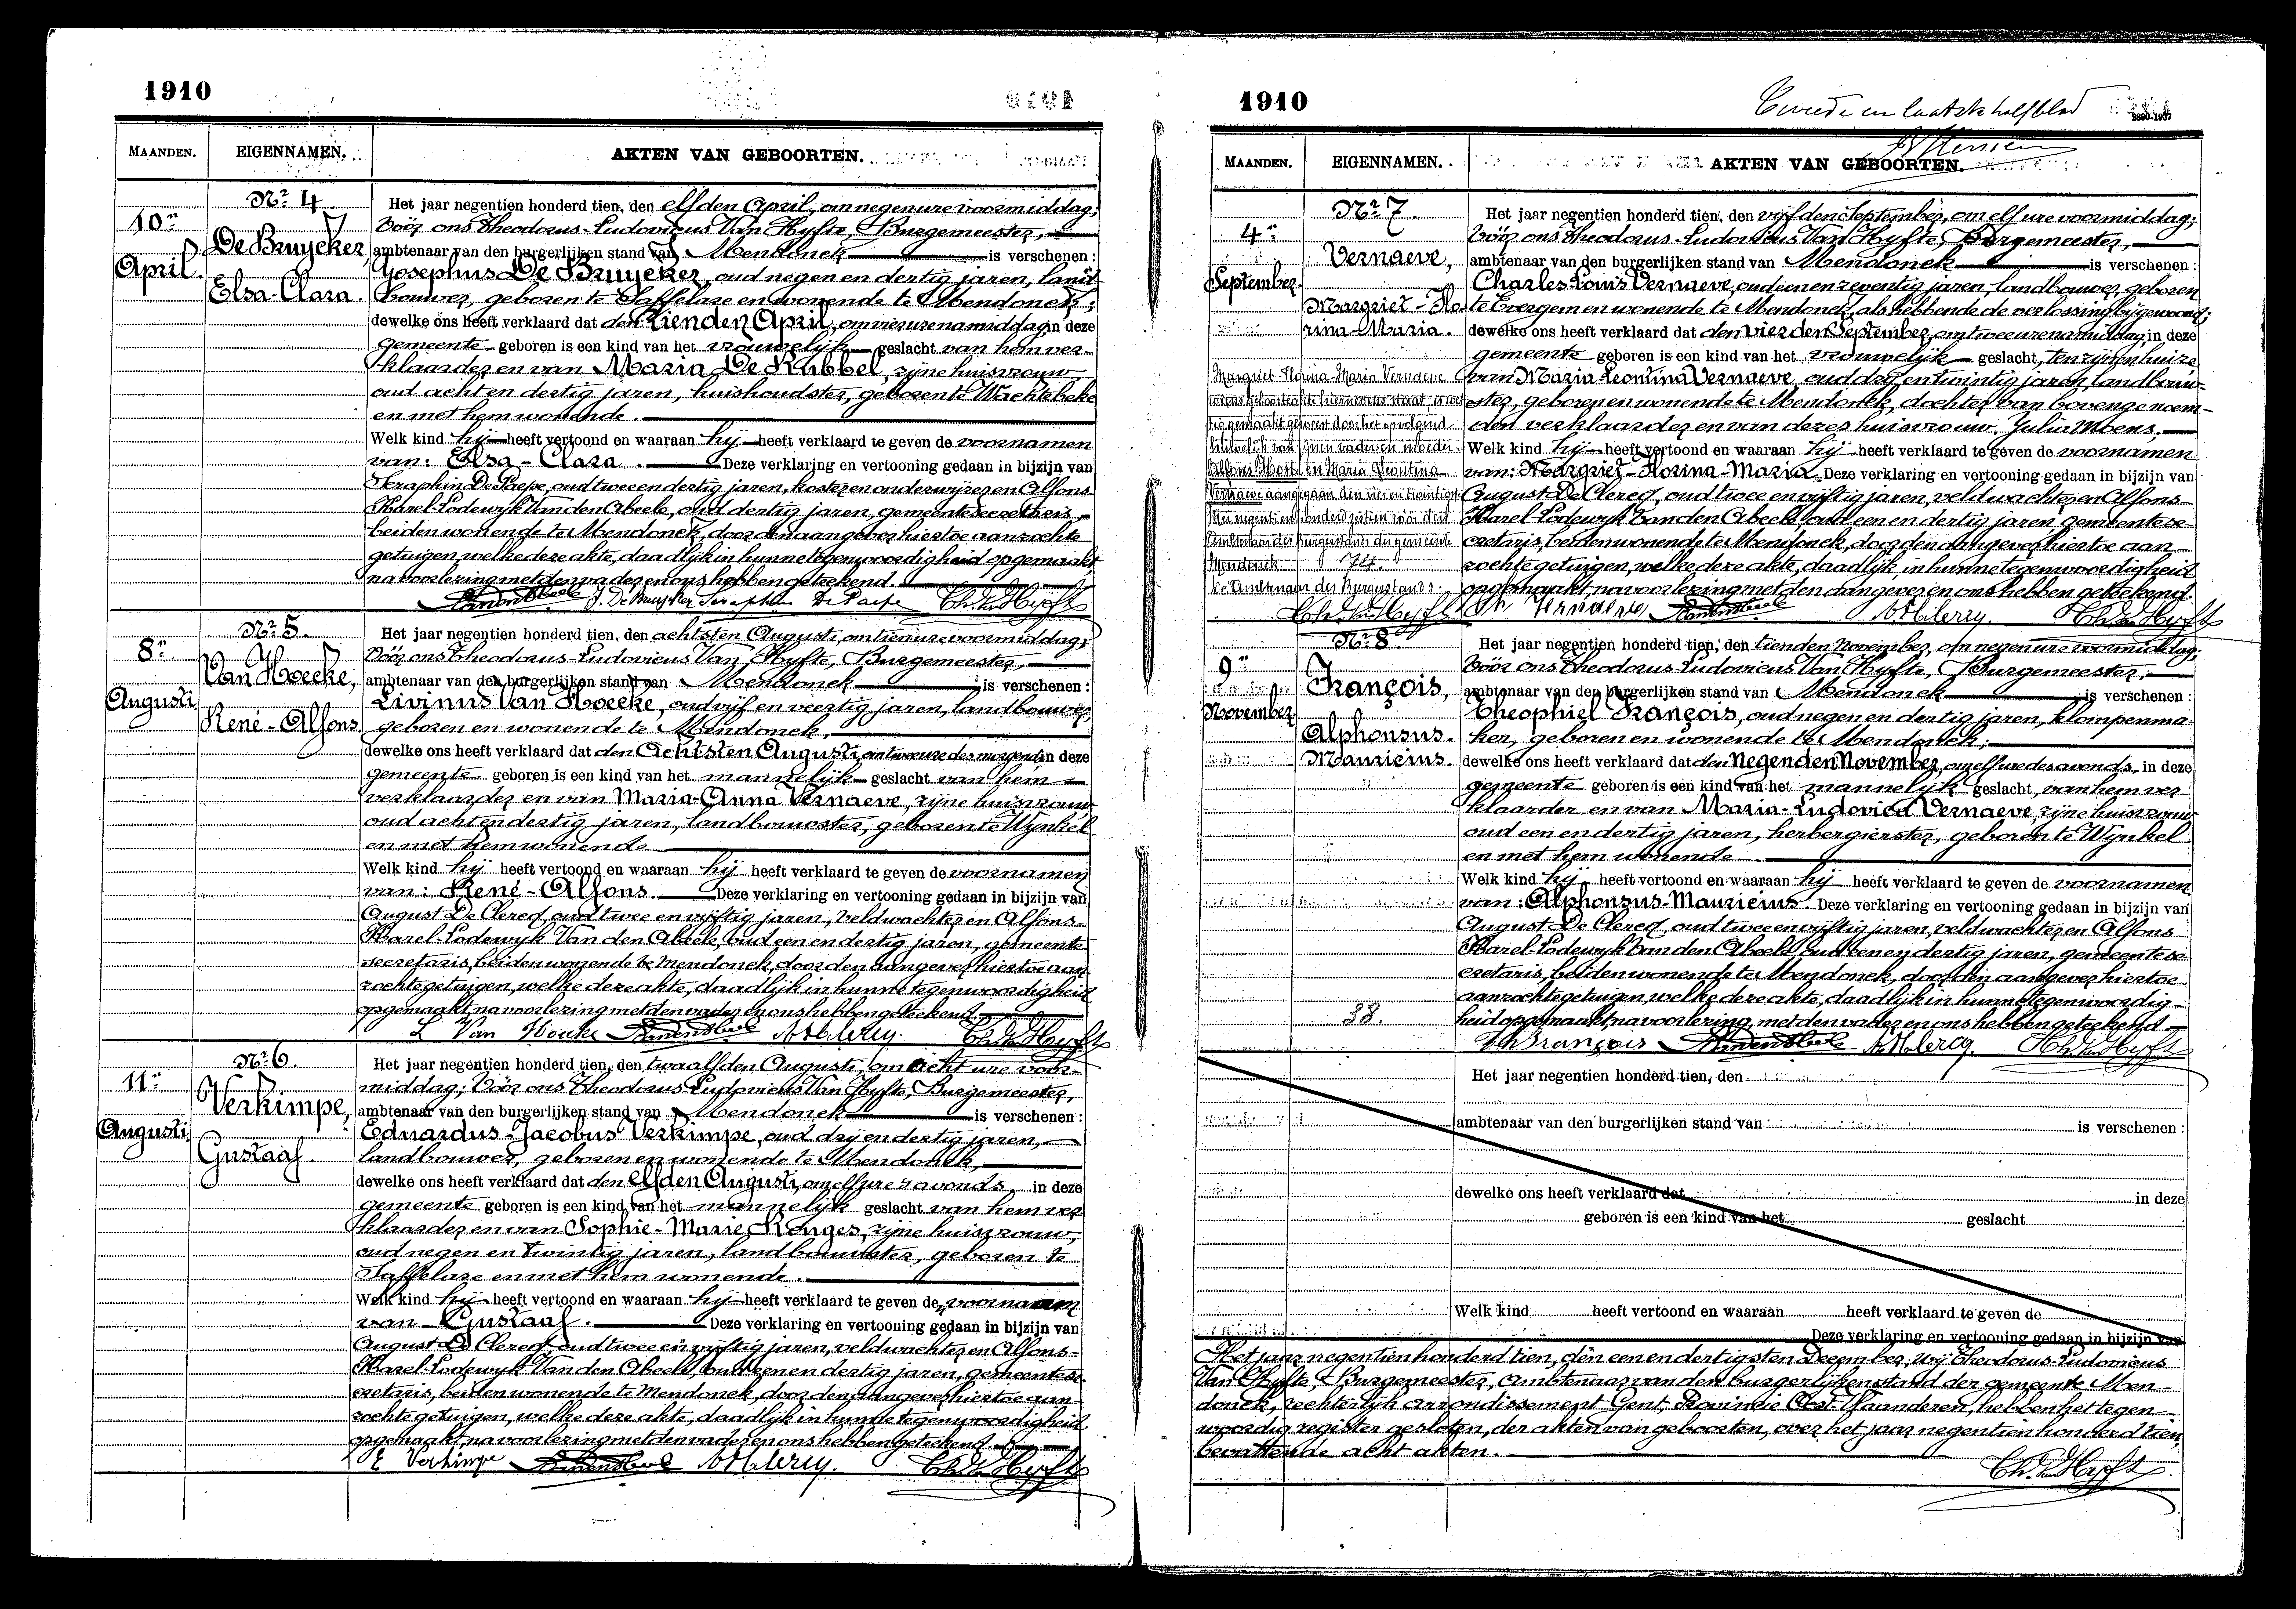 1910
MAANDEN. EIGENNAMEN. AKTEN VAN GEBOORTEN.
Nr 4
10n
April
De Bruycker,
Elsa-Clara.
Het jaar negentien honderd tien, den elfden April, om negen ure voormiddag;
Vóór ons Theodorus-Ludovicus Van Hyfte, Burgemeester,
ambtenaar van den burgerlijken stand van Mendonck is verschenen:
Josephus De Bruycker, oud negen en dertig jaren, land-
bouwer, geboren te Saffelare en wonende te Mendonck;
dewelke ons heeft verklaard dat den tienden April, om vier ure namiddag in deze
gemeente geboren is een kind van het vrouwelijk geslacht van hem ver-
klaarder en van Maria De Kubbel, zijne huisvrouw
oud acht en dertig jaren, huishoudster, geboren te Wachtebeke
en met hem wonende.
Welk kind hij heeft vertoond en waaraan hij heeft verklaard te geven de voornamen
van: Elsa-Clara. Deze verklaring en vertooning gedaan in bijzijn van
Seraphin De Paepe, oud twee en dertig jaren, koster en onderwijzer en Alfons-
Karel-Lodewyk Van den Abeele, oud dertig jaren, gemeentesecretaris
beiden wonende te Mendonck, door den aangever hiertoe aanzochte
getuigen, welke deze akte, daadlijk in hunne tegenwoordigheid opgemaakt
na voorlezing met den vader en ons hebben geteekend.
J. De Bruycker Seraphin De Paepe Th. Van Hyfte
Nr 5.
8n
Augusti
Van Hoecke,
René-Alfons
Het jaar negentien honderd tien, den achtsten Augusti, om tien ure voormiddag;
Vóór ons Theodorus-Ludovicus Van Hyfte, Burgemeester,
ambtenaar van den burgerlijken stand van Mendonck is verschenen:
Livinus Van Hoecke, oud vijf en veertig jaren, landbouwer,
geboren en wonende te Mendonck,
dewelke ons heeft verklaard dat den Achtsten Augusti, om twee ure des morgends in deze
gemeente geboren is een kind van het mannelijk geslacht van hem
verklaarder en van Maria-Anna Vernaeve, zijne huisvrouw
oud acht en dertig jaren, landbouwster, geboren te Wynkel
en met hem wonende
Welk kind hij heeft vertoond en waaraan hij heeft verklaard te geven de voornamen
van: René-Alfons. Deze verklaring en vertooning gedaan in bijzijn van
August De Clercq, oud twee en vijftig jaren, veldwachter en Alfons-
Karel-Lodewyk Van den Abeele, oud een en dertig jaren, gemeente
secretaris, beiden wonende te Mendonck, door den aangever hiertoe aan-
zochte getuigen, welke deze akte, daadlijk in hunne tegenwoordigheid
opgemaakt, na voorlezing met den vader en ons hebben geteekend.
L Van Hoecke Th. Van Hyfte
Nr 6.
11n
Augusti
Verkimpe,
Gustaaf.
Het jaar negentien honderd tien, den twaalfden Augusti, om acht ure voor-
middag; Vóór ons Theodorus-Ludovicus Van Hyfte, Burgemeester,
ambtenaar van den burgerlijken stand van Mendonck is verschenen:
Eduardus-Jacobus Verkimpe, oud drij en dertig jaren,
landbouwer, geboren en wonende te Mendonck,
dewelke ons heeft verklaard dat den elfden Augusti, om elf ure 's avonds, in deze
gemeente geboren is een kind van het mannelijk geslacht van hem ver
klaarder en van Sophie-Marie Ronges, zijne huisvrouw,
oud negen en twintig jaren, landbouwster, geboren te
Saffelare en met hem wonende.
Welk kind hij heeft vertoond en waaraan hij heeft verklaard te geven de voornaam
van Gustaaf. Deze verklaring en vertooning gedaan in bijzijn van
August De Clercq, oud twee en vijftig jaren, veldwachter en Alfons-
Karel-Lodewyk Van den Abeele, oud een en dertig jaren, gemeentese-
cretaris, beiden wonende te Mendonck, door den aangever hiertoe aan-
zochte getuigen, welke deze akte, daadlijk in hunne tegenwoordigheid
opgemaakt, na voorlezing met den vader en ons hebben geteekend.
E Verkimpe Th. Van Hyfte
1910
Tweede en laatste halfblad
2890-1937
MAANDEN. EIGENNAMEN. AKTEN VAN GEBOORTEN.
Nr 7.
4n
September
Vernaeve,
Margriet-Flo-
rina-Maria.
Het jaar negentien honderd tien, den vijfden September, om elf ure voormiddag;
Vóór ons Theodorus-Ludovicus Van Hyfte, Burgemeester,
ambtenaar van den burgerlijken stand van Mendonck is verschenen:
Charles-Louis Vernaeve, oud een en zeventig jaren, landbouwer, geboren
te Evergem en wonende te Mendonck, als hebbende de verlossing bijgewoond;
dewelke ons heeft verklaard dat den vierden September, om twee ure namiddag in deze
gemeente geboren is een kind van het vrouwelijk geslacht, ten zijnen huize
van Maria Leontina Vernaeve, oud drij en twintig jaren, landbouw-
ster, geboren en wonende te Mendonck, dochter van bovengenoem-
den verklaarder en van deszes huisvrouw Julia Moens,
Welk kind hij heeft vertoond en waaraan hij heeft verklaard te geven de voornamen
van: Margriet-Florina-Maria. Deze verklaring en vertooning gedaan in bijzijn van
August De Clercq, oud twee en vijftig jaren, veldwachter en Alfons-
Karel-Lodewyk Van den Abeele, oud een en dertig jaren, gemeentese-
cretaris, beiden wonende te Mendonck, door den aangever hiertoe aan
zochte getuigen, welke deze akte, daadlijk, in hunne tegenwoordigheid
opgemaakt, na voorlezing met den aangever en ons hebben geteekend.
Margriet Florina Maria Vernaeve
wiens geboorteakte hiernevens staat, is wet
tig gemaakt geweest door het opvolgend
huwelijk van zijnen vader en moeder
en Maria Leontina
Vernaeve aangegaan den vier en twintigst
Mei negentien honderd vóór den
Ambtenaar des Burgerstands der gemeente
Mendonck. 74.
De Ambtenaar des Burgerstands:
Th. Van Hyfte Ch Vernaeve Th. Van Hyfte
Nr 8.
9n
November
François,
Alphonsus-
Mauricius.
Het jaar negentien honderd tien, den tienden November, om negen ure voormiddag;
Vóór ons Theodorus-Ludovicus Van Hyfte, Burgemeester,
ambtenaar van den burgerlijken stand van Mendonck is verschenen:
Theophiel François, oud negen en dertig jaren, kloinpenma-
ker, geboren en wonende te Mendonck;
dewelke ons heeft verklaard dat den negenden November, om elf ure des avonds, in deze
gemeente geboren is een kind van het mannelijk geslacht, van hem ver-
klaarder en van Maria-Ludovica Vernaeve, zijne huisvrouw
oud een en dertig jaren, herbergierster, geboren te Wynkel
en met hem wonende.
Welk kind hij heeft vertoond en waaraan hij heeft verklaard te geven de voornamen
van: Alphonsus-Mauricius. Deze verklaring en vertooning gedaan in bijzijn van
August De Clercq, oud twee en vijftig jaren, veldwachter en Alfons
Karel-Lodewyk Van den Abeele, oud een en dertig jaren, gemeentese-
cretaris, beiden wonende te Mendonck, door den aangever hiertoe
aanzochte getuigen, welke deze akte, daadlijk in hunne tegenwoordig-
heid opgemaakt, na voorlezing, met den vader en ons hebben geteekend
38.
Th François Th. Van Hyfte
Het jaar negentien honderd tien, den
ambtenaar van den burgerlijken stand van is verschenen:
dewelke ons heeft verklaard dat in deze
geboren is een kind van het geslacht
Welk kind heeft vertoond en waaraan heeft verklaard te geven de
Deze verklaring en vertooning gedaan in bijzijn van
Het jaar negentien honderd tien, den een en dertigsten December; wij Theodorus-Ludovicus
Van Hyfte, Burgemeester, Ambtenaar van den burgerlijken stand der gemeente Men-
donck, rechterlijk arrondissement Gent, Provincie Oost-Vlaanderen, hebben het tegen
woordig register gesloten, der akten van geboorten, over het jaar negentien honderd tien,
bevattende acht akten.
Th. Van Hyfte